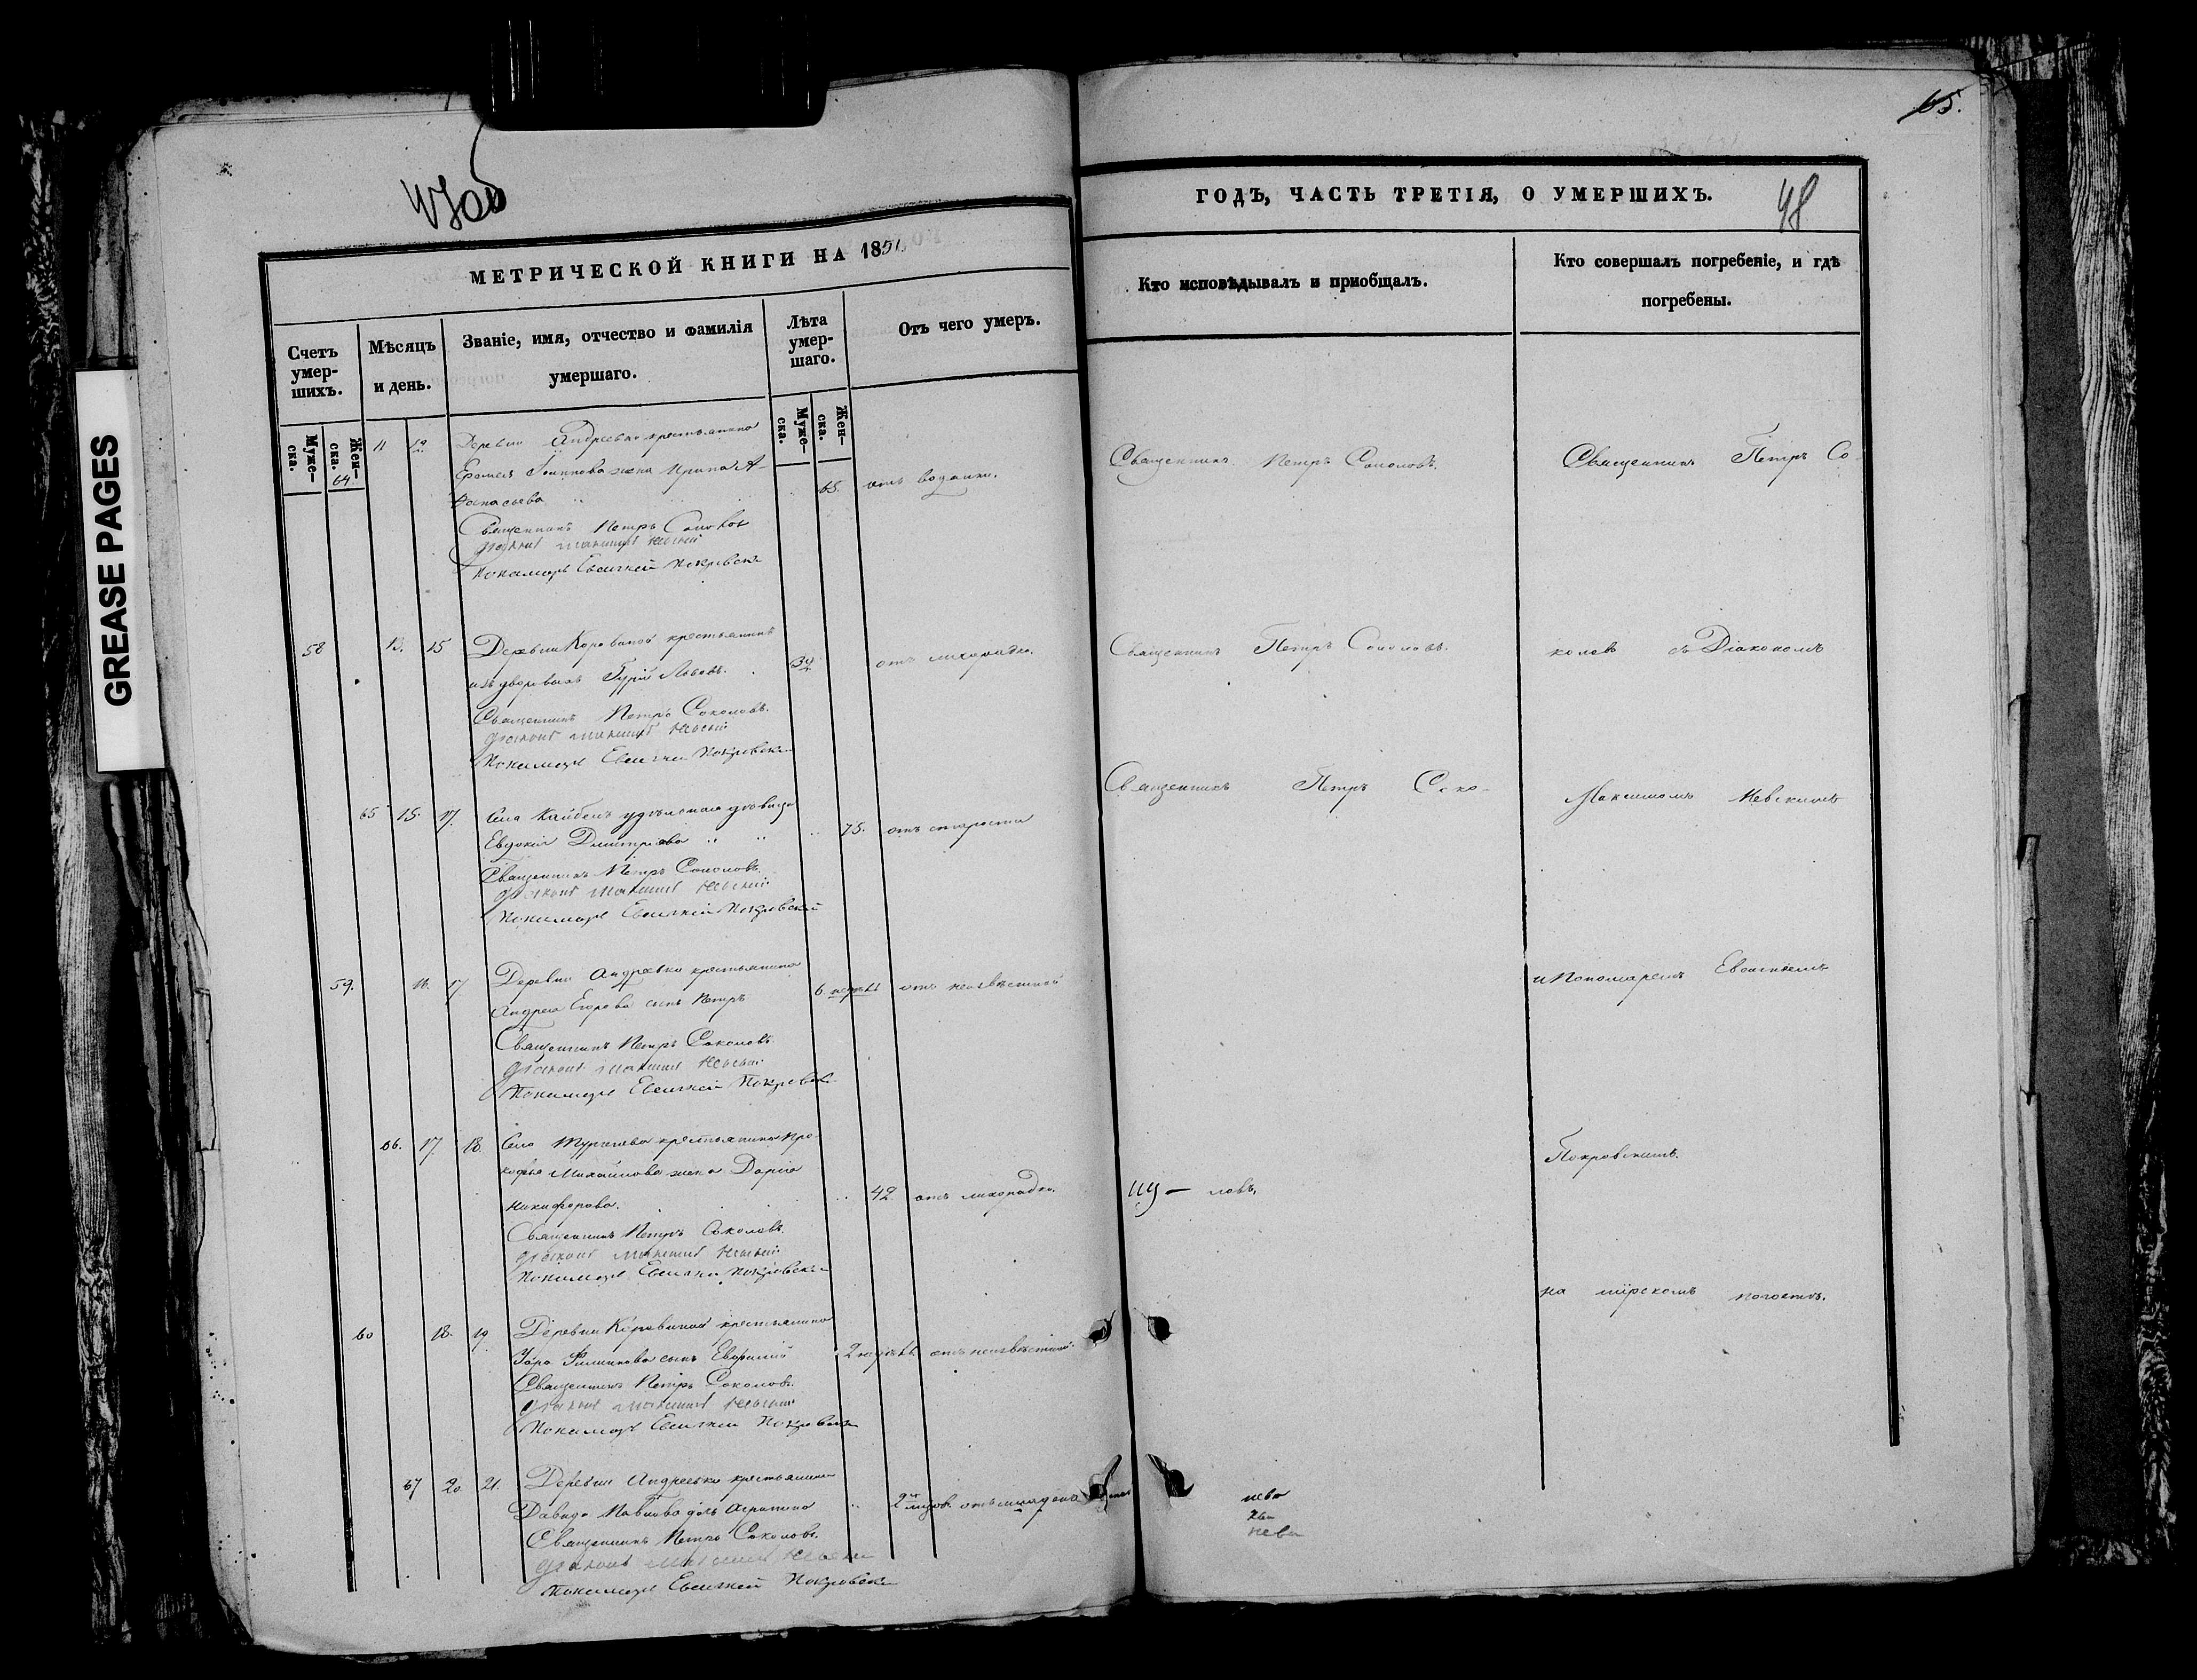 GREASE PAGES
47об
МЕТРИЧЕСКОЙ КНИГИ НА 185
Счетъ умершихъ.
Мѣсяцъ и день.
Званіе, имя, отчество и фамилія умершаго.
Лѣта умершаго.
Отъ чего умеръ.
Муже-ска.
Жен-ска.
Муже-ска.
Жен-ска.
64. 11 12 Деревни Андреевки крестьянина
Ирина А-
фанасьева 68. отъ водянки.
Священникъ Петръ Соколовъ
Діаконъ Максимъ Невскій
Пономарь Евсигній Покровскій
58 13. 15 Деревни Коровиной крестьянинъ
изъ дворовыхъ Гурій Львовъ. 34 отъ лихорадки.
Священникъ Петръ Соколовъ.
Діаконъ Максимъ Невскій
Пономарь Евсигній Покровскій
65 15. 17. Села Кайбелъ удѣльная вдовица
Евдокія Димитріева 75. отъ старости
Священникъ Петръ Соколовъ.
Діаконъ Максимъ Невскій
Пономарь Евсигній Покровскій
59. 16. 17 Деревни Андреевки крестьянина
Андрея Егорова сынъ Петръ 6. недѣль отъ неизвѣстной
Священникъ Петръ Соколовъ
Діаконъ Максимъ Невскій
Пономарь Евсигній Покровскій
66. 17. 18. Села крестьянина Про-
кофья Михайлова жена Дарія
Никифорова. 42. отъ лихорадки.
Священникъ Петръ Соколовъ.
Діаконъ Максимъ Невскій
Пономарь Евсигній Покровскій
60 18. 19 Деревни Коровиной крестьянина
Филиппова сынъ 2 недѣль отъ неизвѣстной.
Священникъ Петръ Соколовъ.
Діаконъ Максимъ Невскій
Пономарь Евсигній Покровскій
67 20 21. Деревни Андреевки крестьянина
Давида Павлова дочь Агрипина
Священникъ Петръ Соколовъ.
Діаконъ Максимъ Невскій
Пономарь Евсигній Покровскій
65.
ГОДЪ, ЧАСТЬ ТРЕТІЯ, О УМЕРШИХЪ.
48
Кто исповѣдывалъ и пріобщалъ.
Кто совершалъ погребеніе, и гдѣ погребены.
Священникъ Петръ Соколовъ.
Священникъ Петръ Со-
Священникъ Петръ Соколовъ.
коловъ съ Діакономъ
Священникъ Петръ Соко-
Максимомъ Невскимъ
и Пономаремъ Евсигніемъ
Покровскимъ.
ловъ.
на мірскомъ погостѣ.